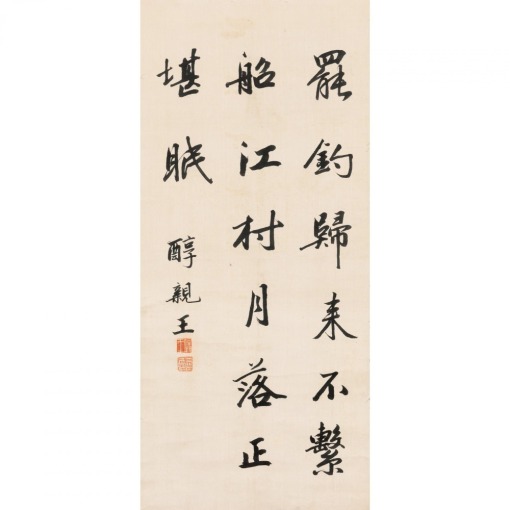 罷釣歸来不繫
船江村月落正
堪眠
醇親王